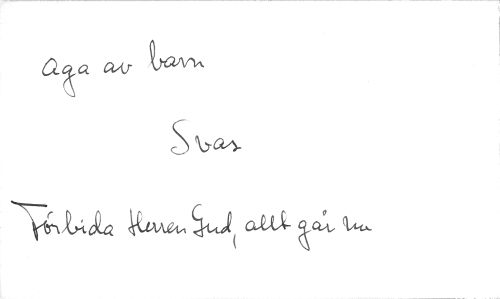 Aga av barn
Svar
Förbida Herren Gud, allt går nu